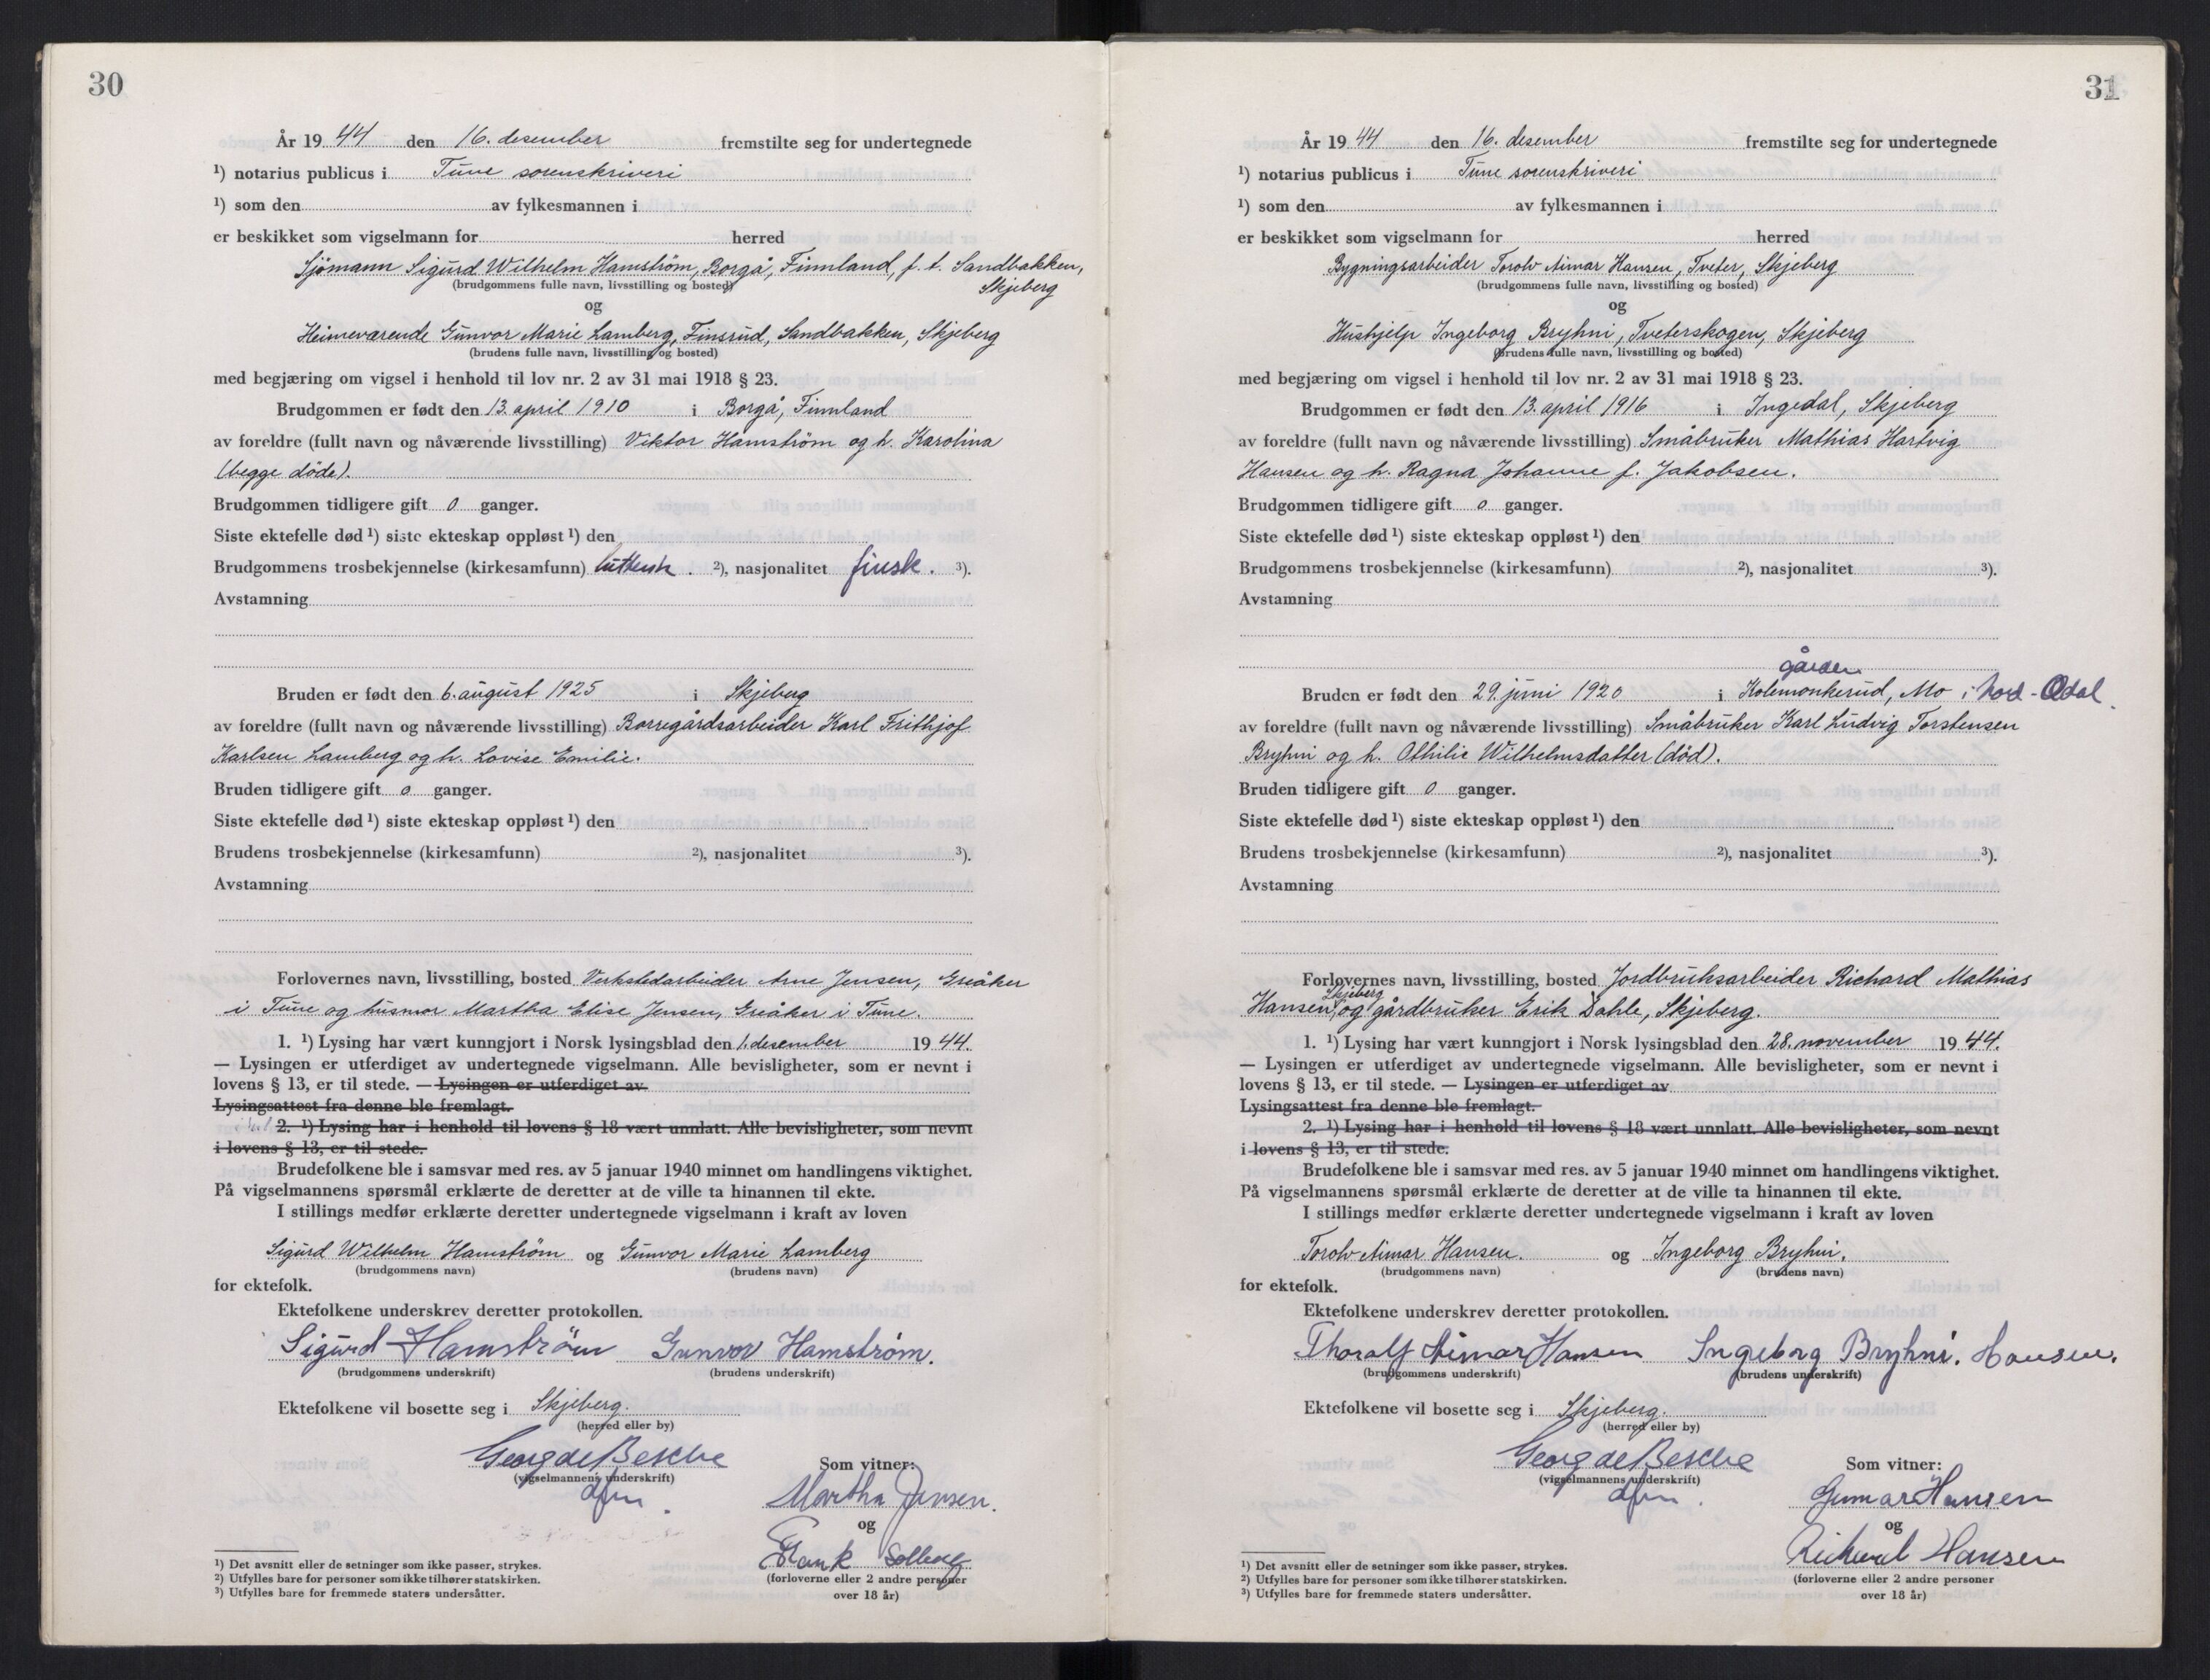 30
År 19 44 den 16. desember fremstilte seg for undertegnede
¹) notarius publicus i Tune sorenskriveri
¹) som den av fylkesmannen i
er beskikket som vigselmann for herred
Sjömann Sigurd Wilhelm Hamström, Borgå, Finnland, f. t. Sandbakken,
(brudgommens fulle navn, livsstilling og bosted) Skjeberg
og
Heimeværende Gunvor Marie Lamberg, Finsrud, Sandbakken, Skjeberg
(brudens fulle navn, livsstilling og bosted)
med begjæring om vigsel i henhold til lov nr. 2 av 31 mai 1918 § 23.
Brudgommen er født den 13. april 1910 i Borgå, Finnland
av foreldre (fullt navn og nåværende livsstilling) Viktor Hamström og h. Karolina
(begge döde).
Brudgommen tidligere gift 0 ganger.
Siste ektefelle død ¹) siste ekteskap oppløst ¹) den
Brudgommens trosbekjennelse (kirkesamfunn) luthersk. ²), nasjonalitet finsk. ³).
Avstamning
Bruden er født den 6. august 1925 i Skjeberg
av foreldre (fullt navn og nåværende livsstilling) Borregårdsarbeider Karl Frithjof
Karlsen Lamberg og h. Lovise Emilie.
Bruden tidligere gift 0 ganger.
Siste ektefelle død ¹) siste ekteskap oppløst ¹) den
Brudens trosbekjennelse (kirkesamfunn) ²), nasjonalitet ³).
Avstamning
Forlovernes navn, livsstilling, bosted Verkstedarbeider Arne Jensen, Greåker
i Tune og husmor Martha Elise Jensen, Greåker i Tune.
1. ¹) Lysing har vært kunngjort i Norsk lysingsblad den 1. desember 19 44.
— Lysingen er utferdiget av undertegnede vigselmann. Alle bevisligheter, som er nevnt i
lovens § 13, er til stede. — Lysingen er utferdiget av
Lysingsattest fra denne ble fremlagt.
2. ¹) Lysing har i henhold til lovens § 18 vært unnlatt. Alle bevisligheter, som nevnt
i lovens § 13, er til stede.
Brudefolkene ble i samsvar med res. av 5 januar 1940 minnet om handlingens viktighet.
På vigselmannens spørsmål erklærte de deretter at de ville ta hinannen til ekte.
I stillings medfør erklærte deretter undertegnede vigselmann i kraft av loven
Sigurd Wilhelm Hamström og Gunvor Marie Lamberg
(brudgommens navn) (brudens navn)
for ektefolk.
Ektefolkene underskrev deretter protokollen.
Sigurd Hamström Gunvor Hamström.
(brudgommens underskrift) (brudens underskrift)
Ektefolkene vil bosette seg i Skjeberg.
(herred eller by)
Georg de Besche
(vigselmannens underskrift) Som vitner:
dfm. Martha Jensen.
og
Frank Solberg
(forloverne eller 2 andre personer
over 18 år)
¹) Det avsnitt eller de setninger som ikke passer, strykes.
²) Utfylles bare for personer som ikke tilhører statskirken.
³) Utfylles bare for fremmede staters undersåtter.
31
År 19 44 den 16. desember fremstilte seg for undertegnede
¹) notarius publicus i Tune sorenskriveri
¹) som den av fylkesmannen i
er beskikket som vigselmann for herred
Bygningsarbeider Torolv Aimar Hansen, Tveter, Skjeberg
(brudgommens fulle navn, livsstilling og bosted)
og
Hushjelp Ingeborg Bryhni, Tveterskogen, Skjeberg
(brudens fulle navn, livsstilling og bosted)
med begjæring om vigsel i henhold til lov nr. 2 av 31 mai 1918 § 23.
Brudgommen er født den 13. april 1916 i Ingedal, Skjeberg
av foreldre (fullt navn og nåværende livsstilling) Småbruker Mathias Hartvig
Hansen og h. Ragna Johanne f. Jakobsen.
Brudgommen tidligere gift 0 ganger.
Siste ektefelle død ¹) siste ekteskap oppløst ¹) den
Brudgommens trosbekjennelse (kirkesamfunn) ²), nasjonalitet ³).
Avstamning
gården
Bruden er født den 29. juni 1920 i Kolemonkerud, Mo i Nord-Odal.
av foreldre (fullt navn og nåværende livsstilling) Småbruker Karl Ludvig Torstensen
Bryhni og h. Othilie Wilhelmsdatter (död).
Bruden tidligere gift 0 ganger.
Siste ektefelle død ¹) siste ekteskap oppløst ¹) den
Brudens trosbekjennelse (kirkesamfunn) ²), nasjonalitet ³).
Avstamning
Forlovernes navn, livsstilling, bosted Jordbruksarbeider Richard Mathias
Skjeberg
Hansen, og gårdbruker Erik Dahle, Skjeberg.
1. ¹) Lysing har vært kunngjort i Norsk lysingsblad den 28. november 19 44.
— Lysingen er utferdiget av undertegnede vigselmann. Alle bevisligheter, som er nevnt i
lovens § 13, er til stede. — Lysingen er utferdiget av
Lysingsattest fra denne ble fremlagt.
2. ¹) Lysing har i henhold til lovens § 18 vært unnlatt. Alle bevisligheter, som nevnt
i lovens § 13, er til stede.
Brudefolkene ble i samsvar med res. av 5 januar 1940 minnet om handlingens viktighet.
På vigselmannens spørsmål erklærte de deretter at de ville ta hinannen til ekte.
I stillings medfør erklærte deretter undertegnede vigselmann i kraft av loven
Torolv Aimar Hansen. og Ingeborg Bryhni.
(brudgommens navn) (brudens navn)
for ektefolk.
Ektefolkene underskrev deretter protokollen.
Thoralf Aimar Hansen Ingeborg Bryhni. Hansen.
(brudgommens underskrift) (brudens underskrift)
Ektefolkene vil bosette seg i Skjeberg.
(herred eller by)
Georg de Besche
(vigselmannens underskrift) Som vitner:
dfm. Gunnar Hansen
og
Richard Hansen
(forloverne eller 2 andre personer
over 18 år)
¹) Det avsnitt eller de setninger som ikke passer, strykes.
²) Utfylles bare for personer som ikke tilhører statskirken.
³) Utfylles bare for fremmede staters undersåtter.